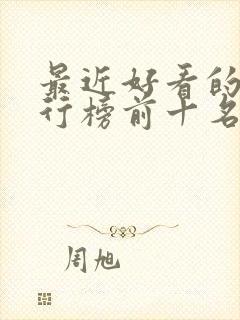 最近好看的
行榜前十名
周旭